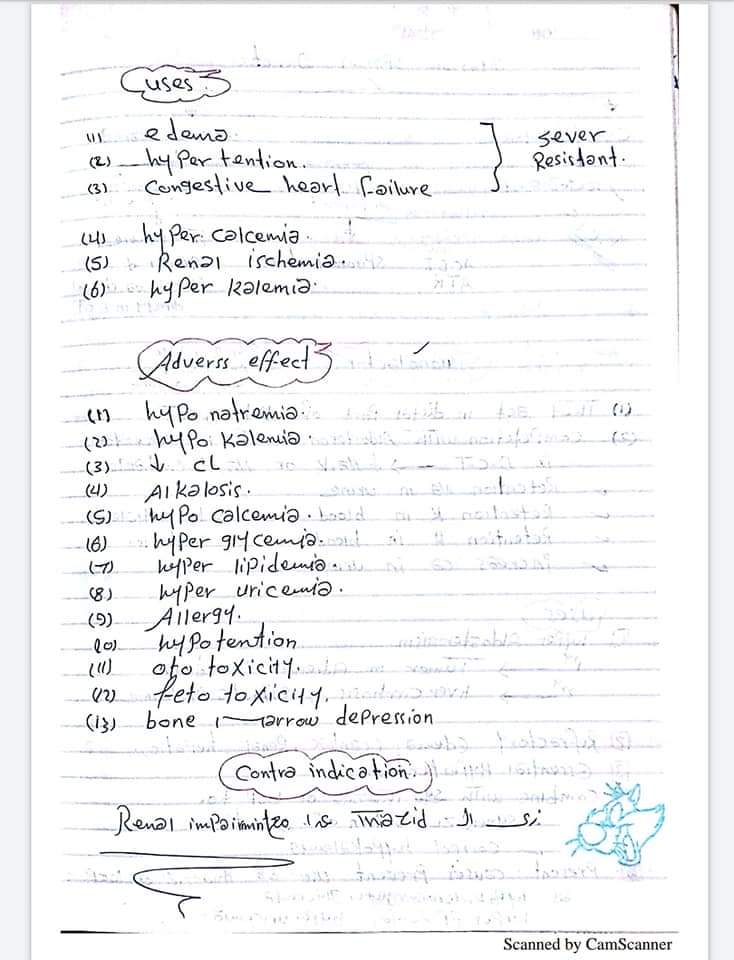 uses
(1) edema
(2) hyper tention.
(3) Congestive heart failure
sever
Resistant.
(4) hyper calcemia.
(5) Renal ischemia.
(6) hyper kalemia.
Adverss effect
(1) hypo natremia.
(2) hypo kalemia
(3) ↓ CL
(4) Alkalosis.
(5) hypo calcemia.
(6) hyper glycemia.
(7) hyper lipidemia.
(8) hyper uricemia.
(9) Allergy.
(10) hypotention
(11) oto toxicity.
(12) feto toxicity.
(13) bone marrow depression
Contra indication.
Renal زي ال
Scanned by CamScanner